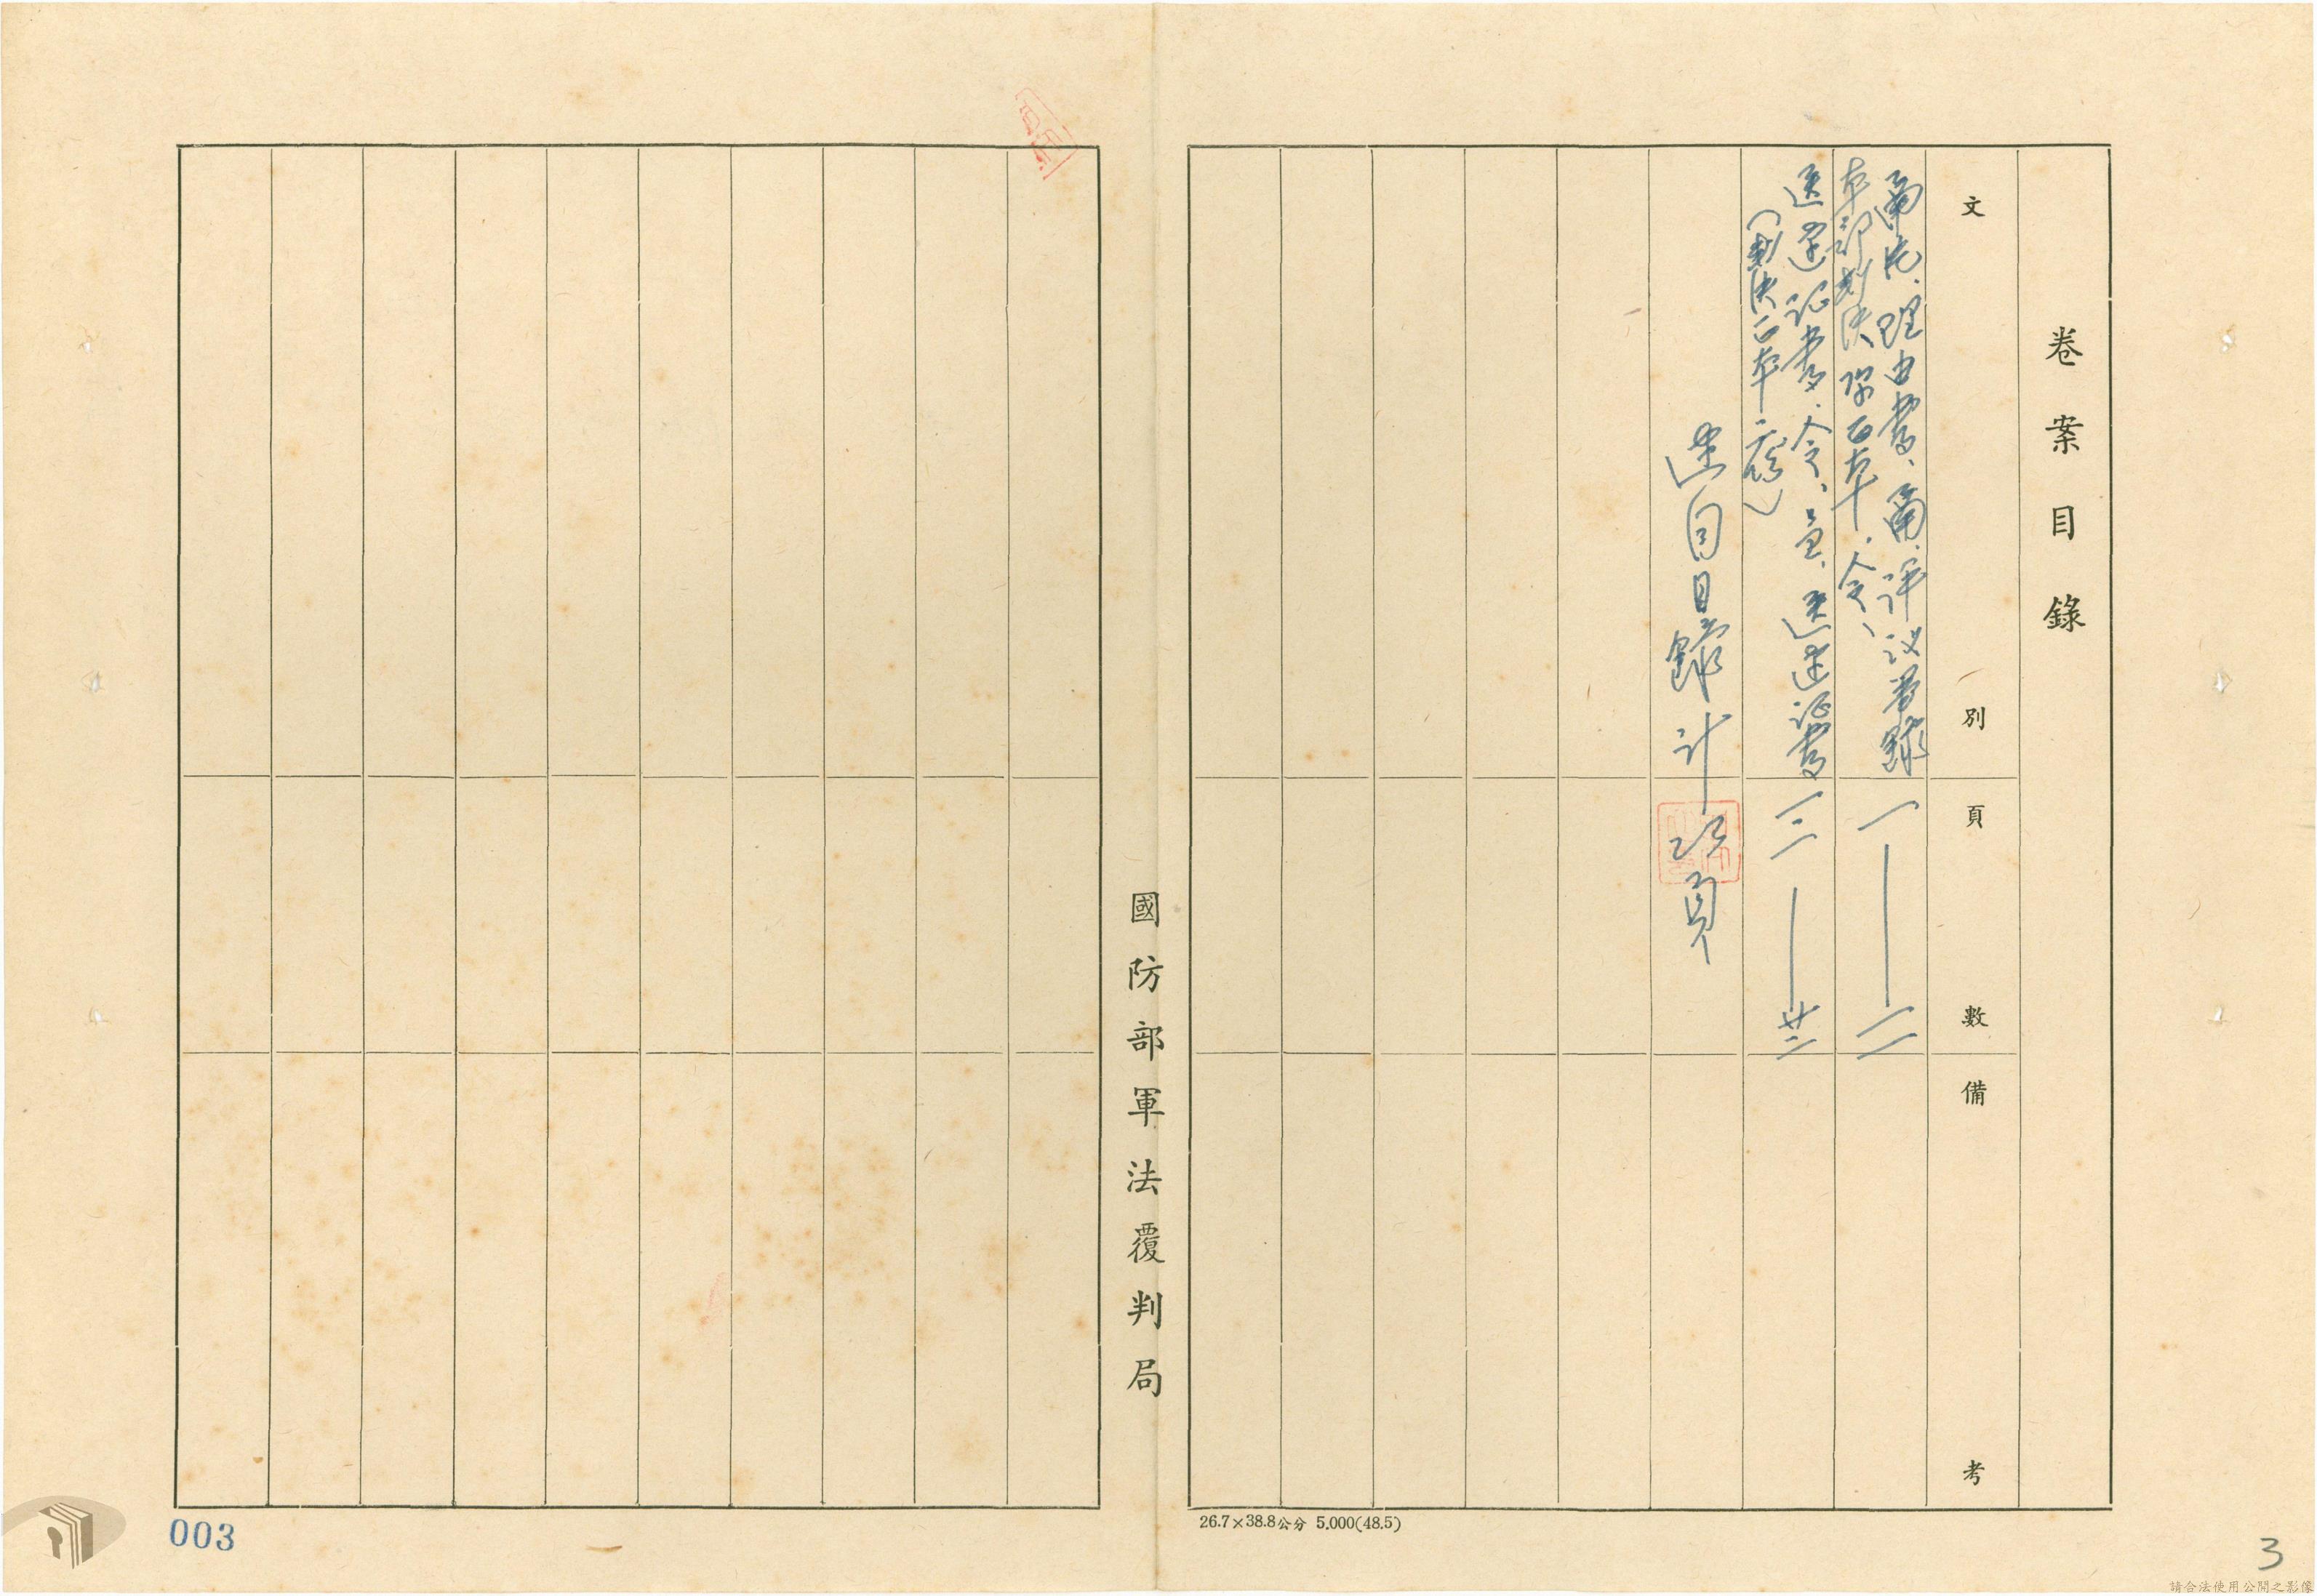 卷案目錄
文別
頁數
備考
聲請理由書、評議簿錄
一——二
本部判決原正本、令、
送達證書、令、呈、送達證書
三——廿三
（判決正本二份）
連同目錄計25頁
國防部軍法覆判局
26.7×38.8公分 5.000(48.5)
003
3
請合法使用公開之影像